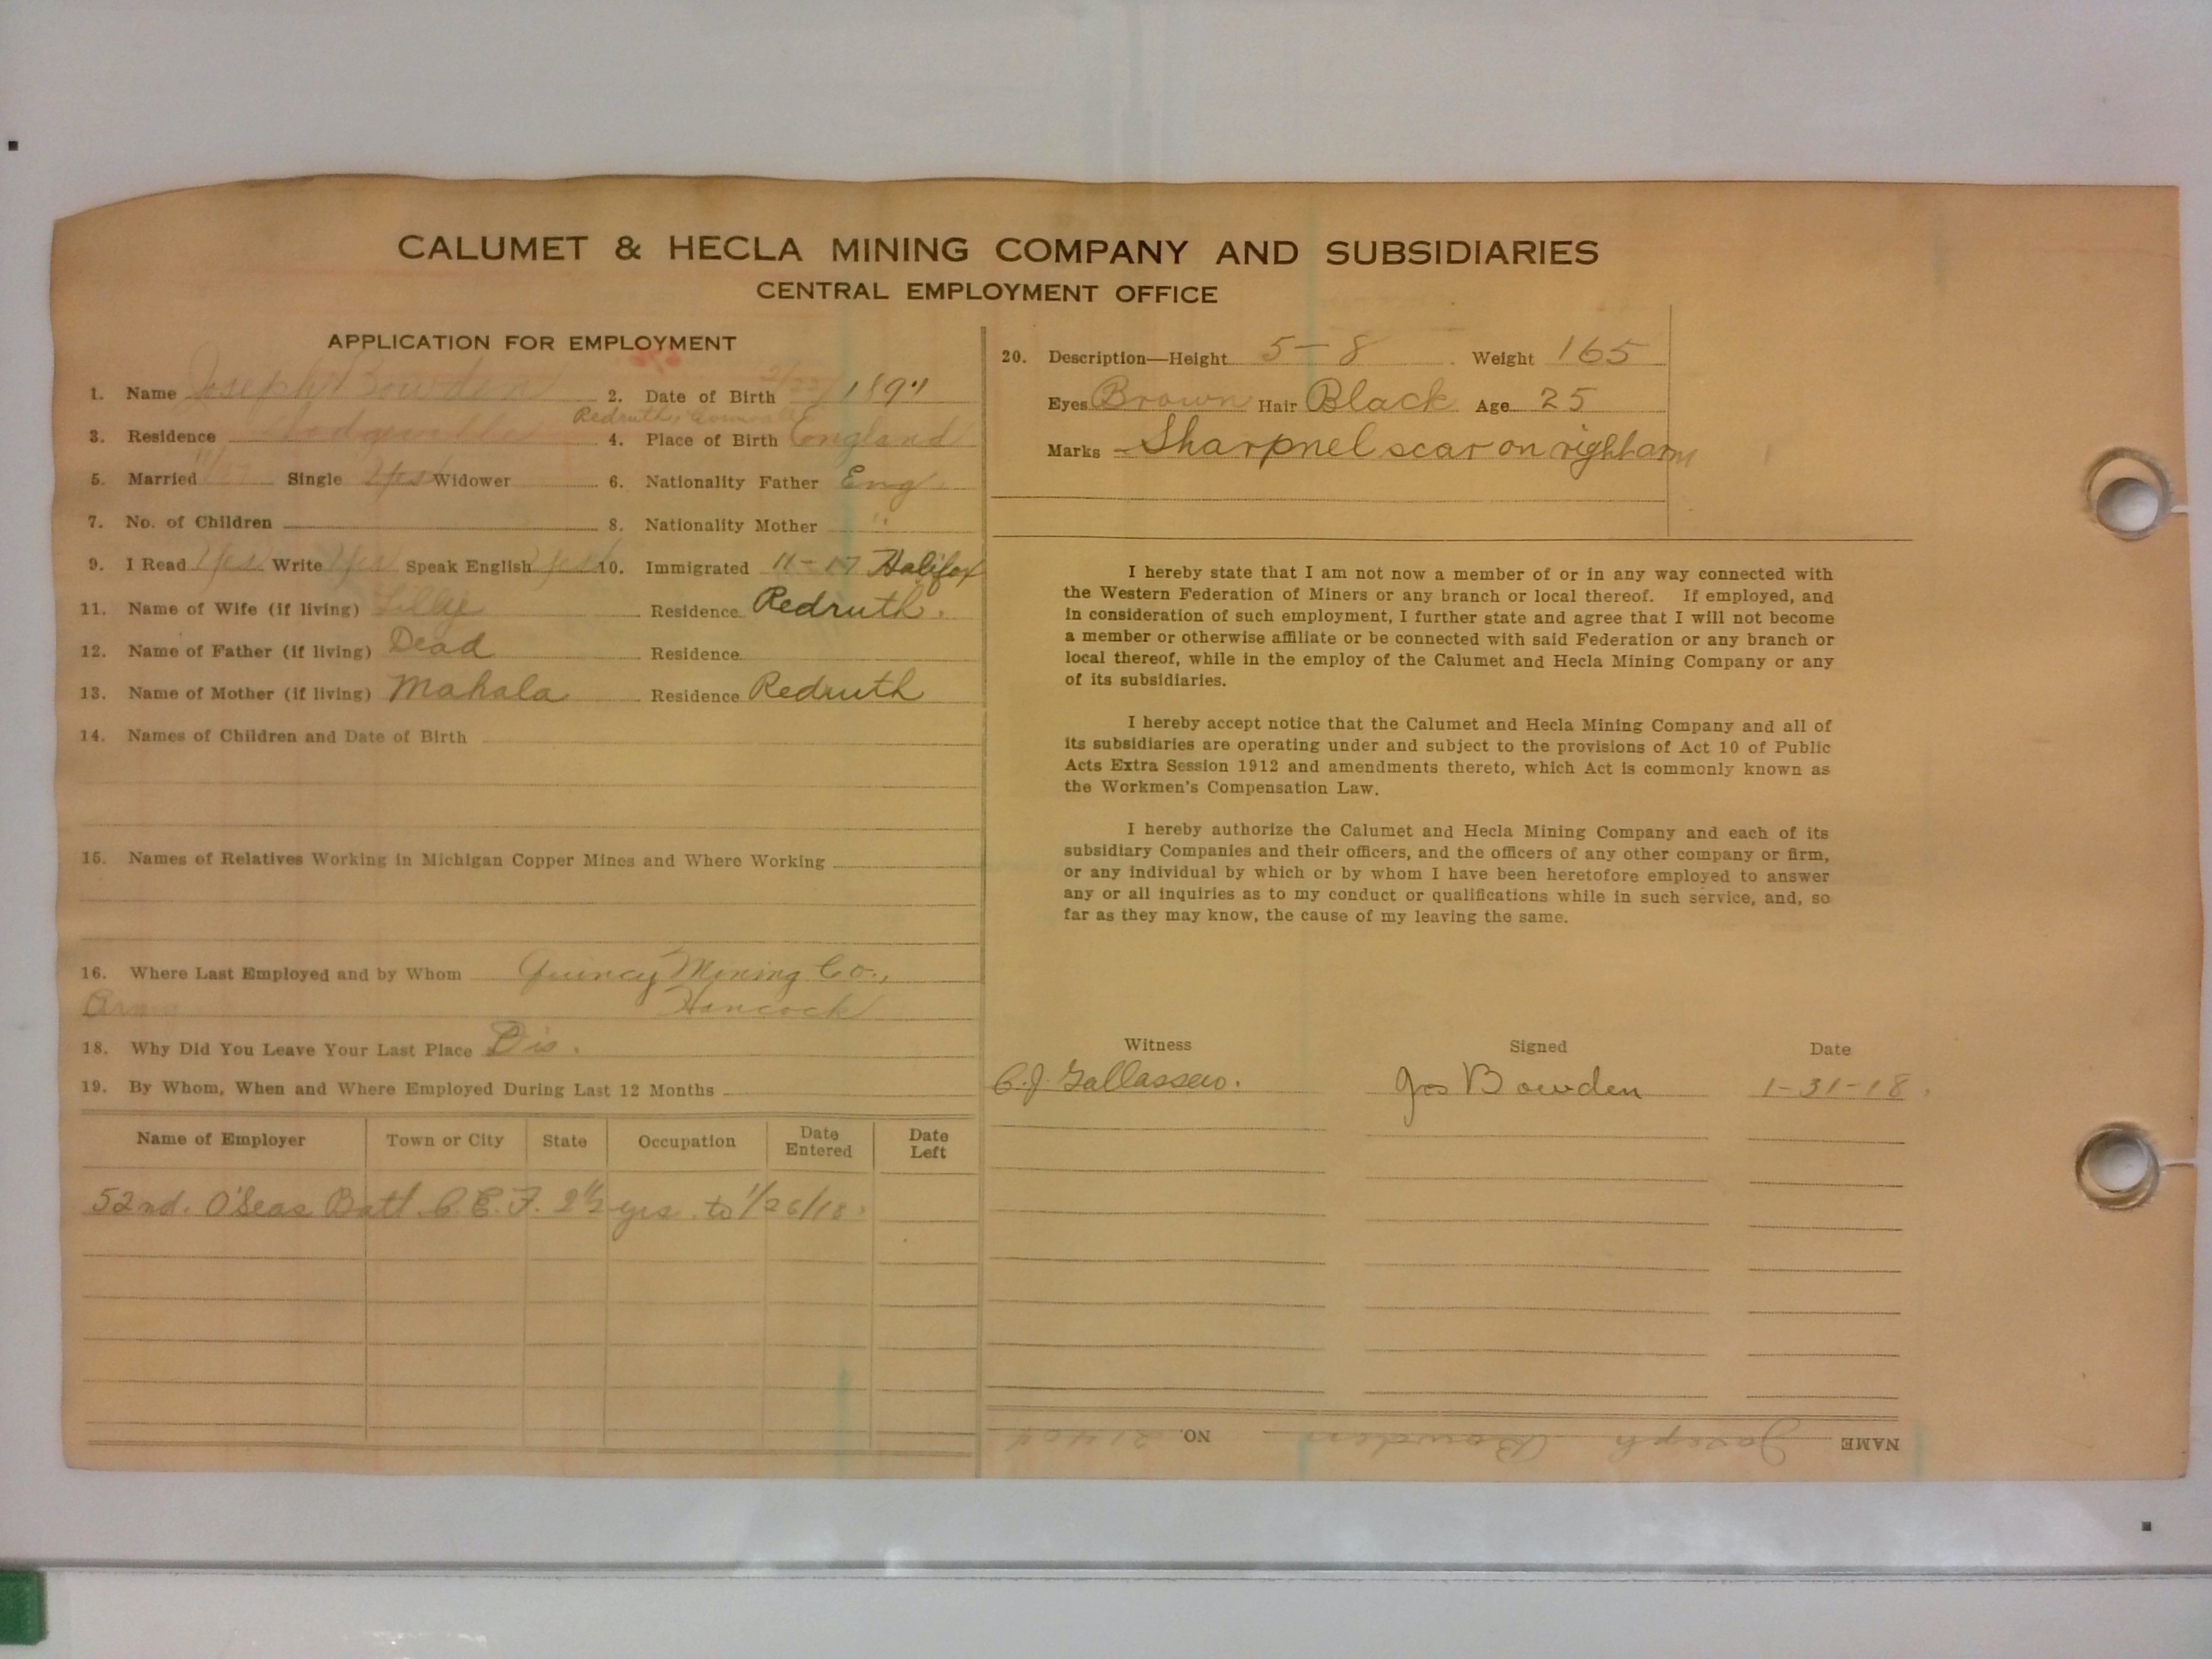 CALUMET & HECLA MINING COMPANY AND SUBSIDIARIES
CENTRAL EMPLOYMENT OFFICE
APPLICATION FOR EMPLOYMENT
1. Name Joseph Bowden 2. Date of Birth
Redruth,
3. Residence 4. Place of Birth England
5. Married Single Yes Widower 6. Nationality Father Eng.
7. No. of Children 8. Nationality Mother "
9. I Read Yes Write Yes Speak English Yes 10. Immigrated 11-17 Halifax
11. Name of Wife (if living) Residence Redruth.
12. Name of Father (if living) Dead Residence
13. Name of Mother (if living) Mahala Residence Redruth
14. Names of Children and Date of Birth
15. Names of Relatives Working in Michigan Copper Mines and Where Working
16. Where Last Employed and by Whom Quincy Mining Co.,
Army Hancock
18. Why Did You Leave Your Last Place Dis.
19. By Whom, When and Where Employed During Last 12 Months
Name of Employer Town or City State Occupation Date Entered Date Left
52nd. O'Seas Batt. C.E.F. 2 1/2 yrs. to 1/26/18.
20. Description—Height 5-8 Weight 165
Eyes Brown Hair Black Age 25
Marks Sharpnel scar on right arm
I hereby state that I am not now a member of or in any way connected with
the Western Federation of Miners or any branch or local thereof. If employed, and
in consideration of such employment, I further state and agree that I will not become
a member or otherwise affiliate or be connected with said Federation or any branch or
local thereof, while in the employ of the Calumet and Hecla Mining Company or any
of its subsidiaries.
I hereby accept notice that the Calumet and Hecla Mining Company and all of
its subsidiaries are operating under and subject to the provisions of Act 10 of Public
Acts Extra Session 1912 and amendments thereto, which Act is commonly known as
the Workmen's Compensation Law.
I hereby authorize the Calumet and Hecla Mining Company and each of its
subsidiary Companies and their officers, and the officers of any other company or firm,
or any individual by which or by whom I have been heretofore employed to answer
any or all inquiries as to my conduct or qualifications while in such service, and, so
far as they may know, the cause of my leaving the same.
Witness Signed Date
C.J. Jos Bowden 1-31-18.
NAME Joseph Bowden NO. 21404